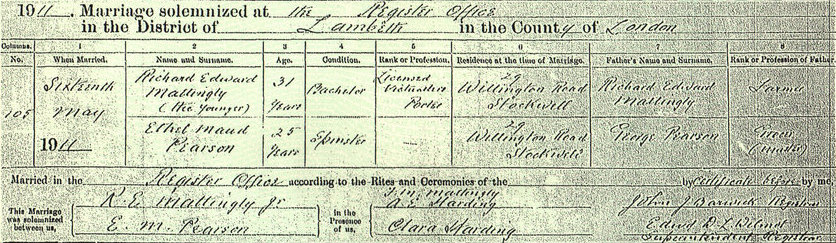 1911. Marriage solemnized at the Register Office
in the District of Lambeth in the County of London
Columns. 1 2 3 4 5 6 7 8
No. When Married. Name and Surname. Age. Condition. Rank or Profession. Residence at the time of Marriage. Father's Name and Surname. Rank or Profession of Father.
105 Sixteenth May 1911
Richard Edward Mattingly (the younger) 31 Years Bachelor Licensed Victuallers Potman 29 Willington Road Stockwell Richard Edward Mattingly
Ethel Maud Pearson 25 Years Spinster — 29 Willington Road Stockwell George Pearson (master)
Married in the Register Office according to the Rites and Ceremonies of the by Certificate before by me,
This Marriage was solemnized between us,
R. E. Mattingly Jr
E. M. Pearson
in the Presence of us,
Mattingly
A. E. Harding
Clara Harding
John J Barwick Registrar
Edwd R. L. Wilmot
Superintendent Registrar